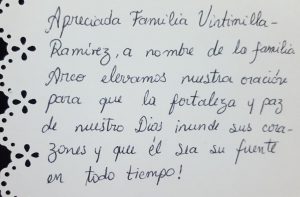 Apreciada Familia Vintimilla-
Ramírez, a nombre de la familia
Arco elevamos nuestra oración
para que la fortaleza y paz
de nuestro Dios inunde sus cora-
zones y que él sea su fuente
en todo tiempo!